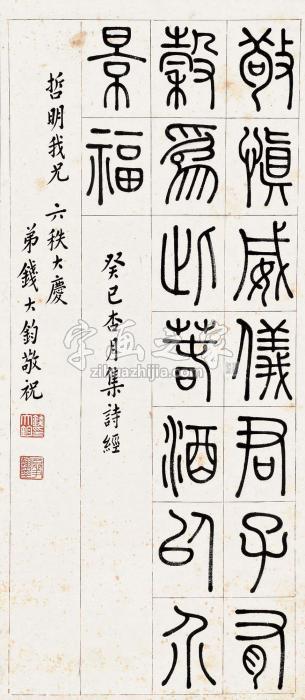 敬慎威儀君子有
穀爲此春酒以介
景福
癸巳杏月集詩經
哲明我兄 六秩大慶
弟錢大鈞敬祝
字画之家
zihuazhijia.com